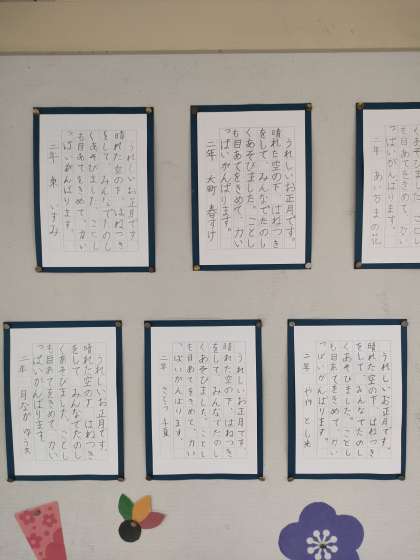 うれしいお正月です。
晴れた空の下、はねつき
をして、みんなでたのし
くあそびました。ことし
も目あてをきめて、力い
っぱいがんばります。
二年 東 いずみ
うれしいお正月です。
晴れた空の下、はねつき
をして、みんなでたのし
くあそびました。ことし
も目あてをきめて、力い
っぱいがんばります。
二年 大町 春すけ
も目あてをきめて、力い
っぱいがんばります。
二年
うれしいお正月です。
晴れた空の下、はねつき
をして、みんなでたのし
くあそびました。ことし
も目あてをきめて、力い
っぱいがんばります。
二年
うれしいお正月です。
晴れた空の下、はねつき
をして、みんなでたのし
くあそびました。ことし
も目あてをきめて、力い
っぱいがんばります。
二年
うれしいお正月です。
晴れた空の下、はねつき
をして、みんなでたのし
くあそびました。ことし
も目あてをきめて、力い
っぱいがんばります。
二年